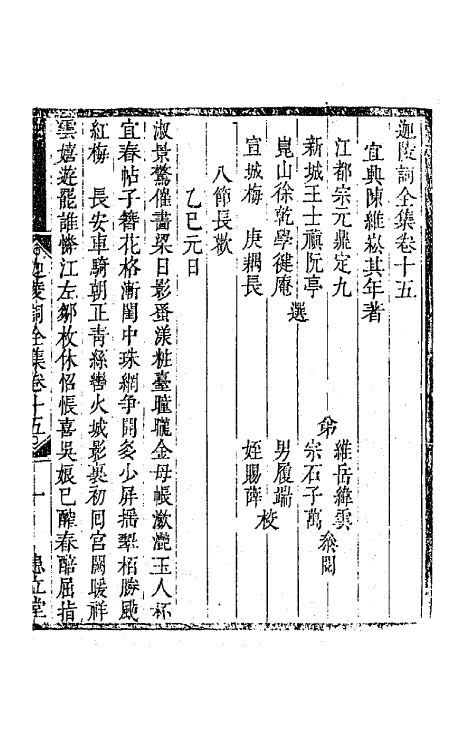 迦陵詞全集卷十五
宜興陳維崧其年著
江都宗元鼎定九
新城王士禛阮亭
崑山徐乾學健庵
宣城梅庚耦長
選
弟
維岳緯雲
宗石子萬
叅閱
男履端
姪賜薛
校
八節長歡
乙巳元日
淑景驚催畵梁日影蚤漾粧臺曈曨金母帳瀲灧玉人杯
宜春帖子簪花格漸閨中珠網争開多少屏摇翠栢勝颭
紅梅　長安車騎朝正靑絲轡火城影裏初囘宮闕暖祥
雲嬉遊誰憐江左鄒枚休怊悵喜吳娘已醡春醅屈指
迦陵詞全集卷十五
一
患立堂